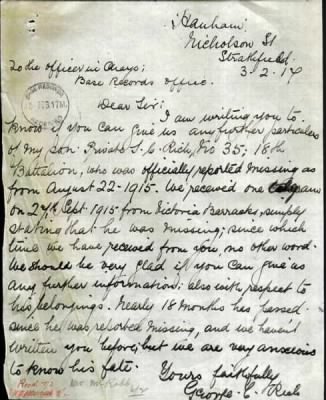 "Hanham"
Nicholson St
Strathfield.
3.2.17
To the Officer in Charge;
Base Records Office.
Dear Sir;
I am writing you to
know if you can give us any further particulars
of my son. Private S. C. Rich, No 35; 18th
Battalion, who was officially reported missing as
from August 22-1915. We received one telegram
on 27th Sept. 1915 from Victoria Barracks, simply
stating that he was missing; since which
time we have received from you, no other word.
We should be very glad if you can give us
any further information; also with respect to
his belongings. Nearly 18 months has passed
since he was reported missing, and we haven't
written you before; but we are very anxious
to know his fate.
Yours faithfully
George. C. Rich